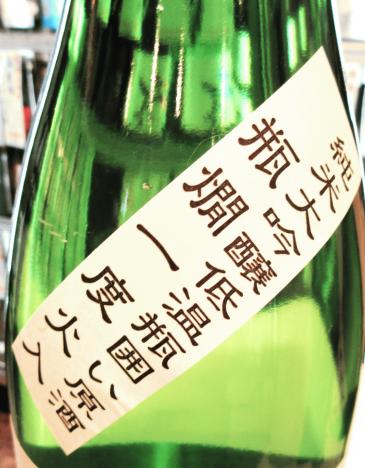 純米大吟醸低温瓶囲い原酒
瓶燗一度火入